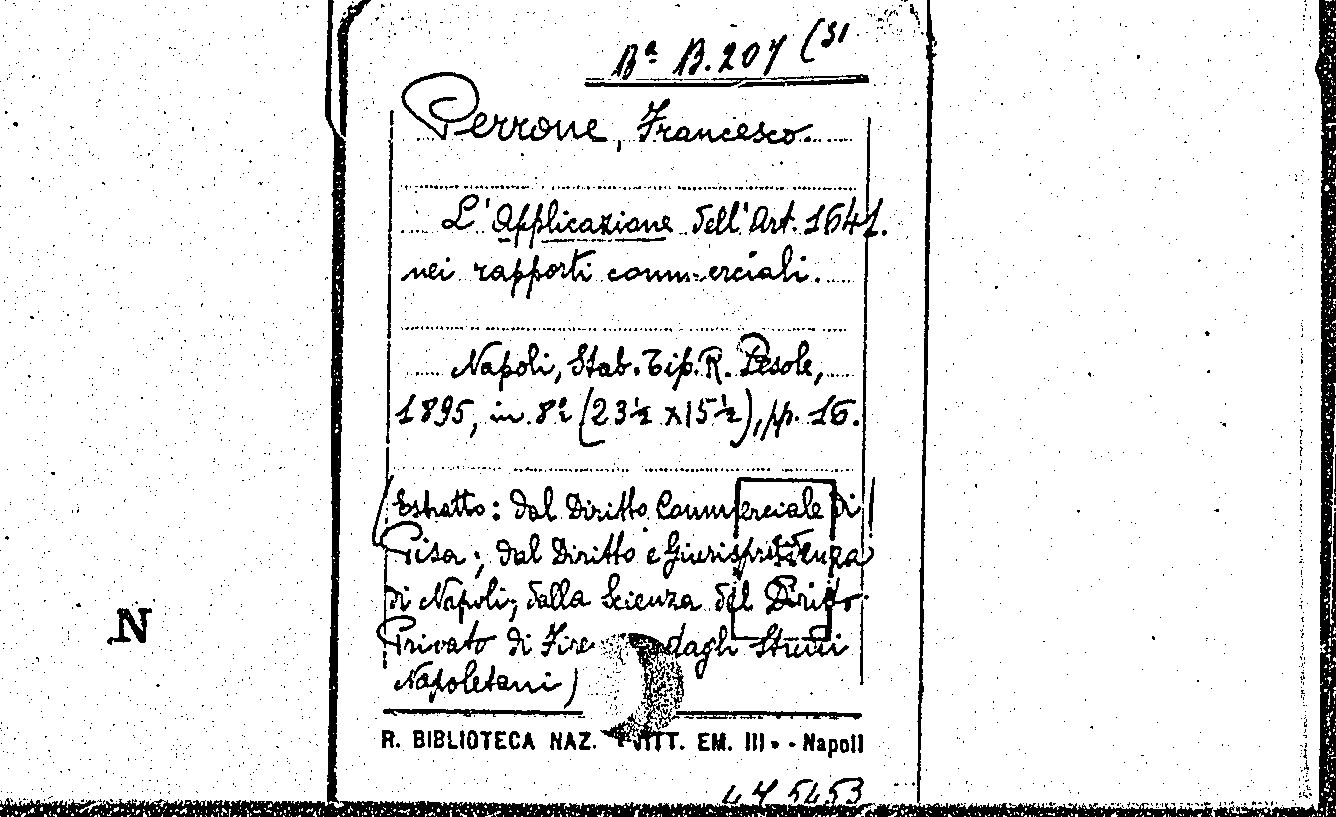 Bª B. 207 (31
Perrone, Francesco.
L'Applicazione dell'Art. 1641.
nei rapporti commerciali.
Napoli, Stab. Tip. R. Pesole,
1895, in 8º (23½ x 15½), pp. 16.
(Estratto: dal Diritto Commerciale di
Pisa; dal Diritto e Giurisprudenza
di Napoli; dalla Scienza del Diritto
Privato di Fire dagli Studi
Napoletani)
R. BIBLIOTECA NAZ. VITT. EM. III - Napoli
N